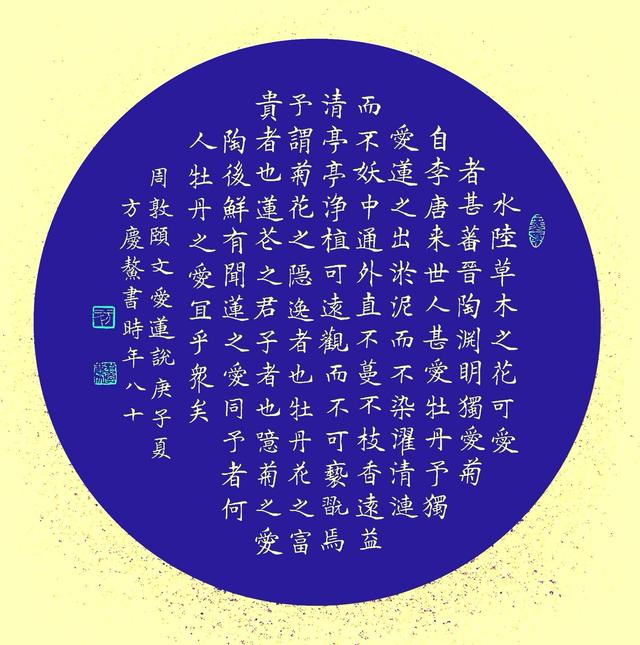 水陸草木之花可愛
者甚蕃晉陶渊明獨愛菊
自李唐来世人甚愛牡丹予獨
愛蓮之出淤泥而不染濯清漣
而不妖中通外直不蔓不枝香遠益
清亭亭浄植可遠觀而不可褻翫焉
予謂菊花之隠逸者也牡丹花之富
貴者也蓮花之君子者也噫菊之愛
陶後鮮有聞蓮之愛同予者何
人牡丹之愛宜乎衆矣
周敦頤文愛蓮說庚子夏
方慶鰲書時年八十